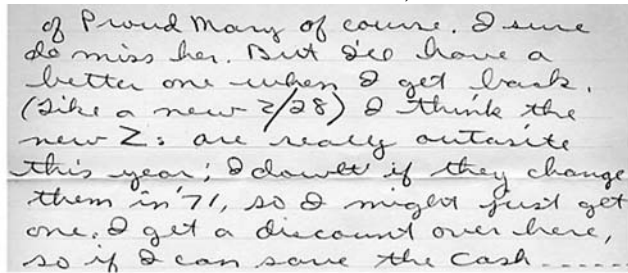 of Proud Mary of course. I sure
do miss her. But I'll have a
better one when I get back.
(Like a new Z/28) I think the
new Z's are really outasite
this year; I doubt if they change
them in '71, so I might just get
one. I get a discount over here,
so if I can save the cash -----